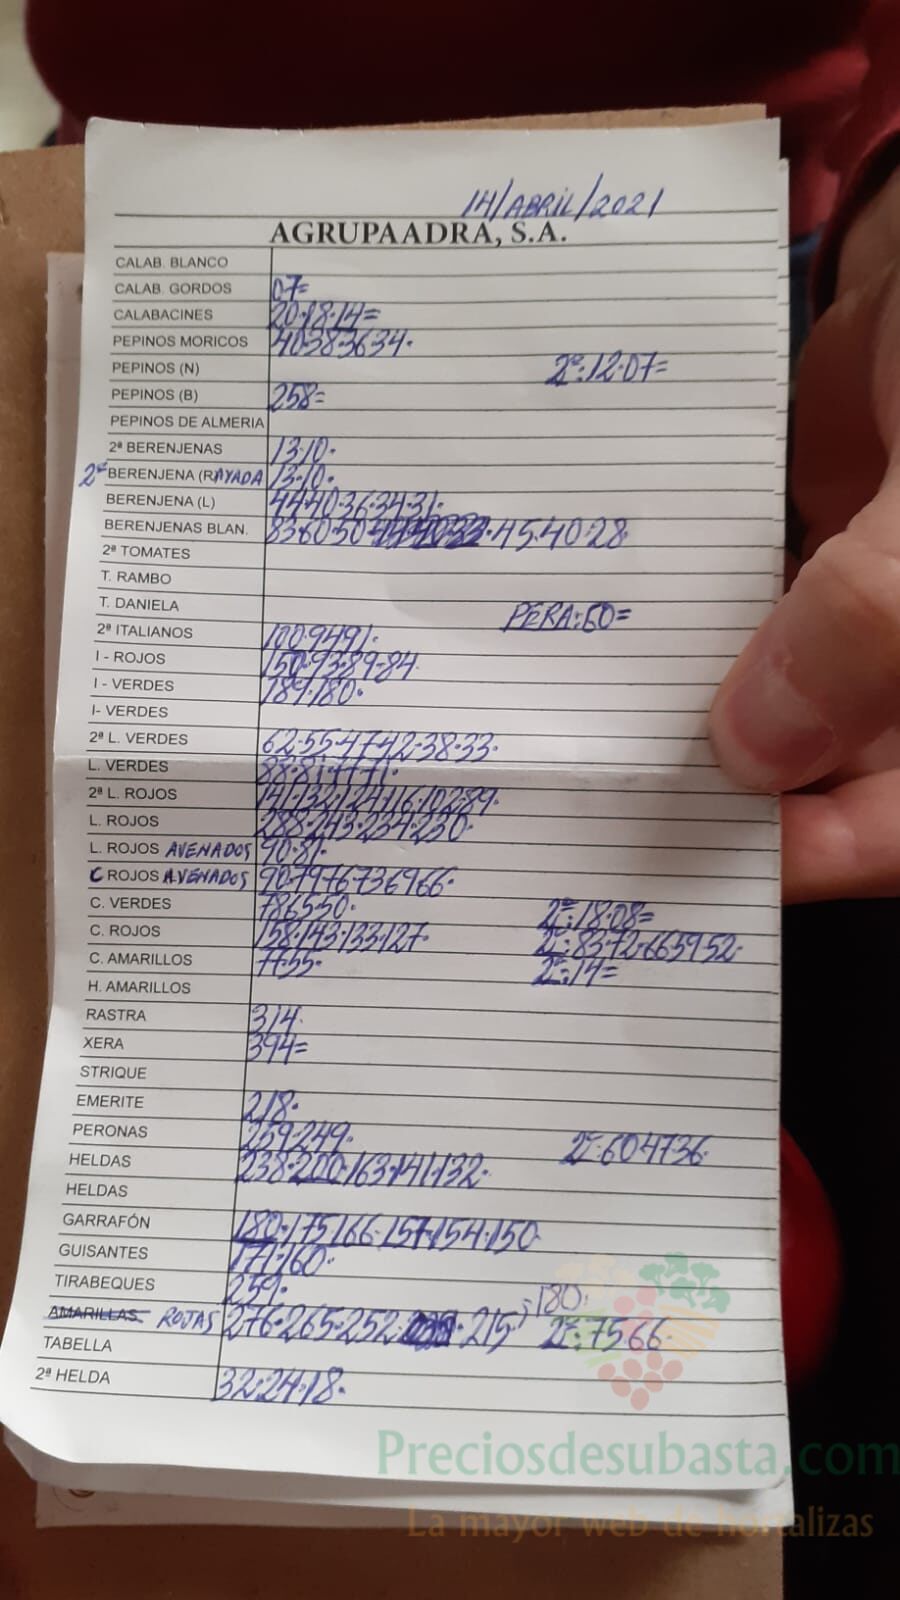 14/ABRIL/2021
AGRUPAADRA, S.A.
CALAB. BLANCO
CALAB. GORDOS 07=
CALABACINES 20·18·14=
PEPINOS MORICOS 40·38·36·34·
PEPINOS (N) 2ª:12·07=
PEPINOS (B) 258=
PEPINOS DE ALMERIA
2ª BERENJENAS 13·10·
2ª BERENJENA (RAYADA 13·10·
BERENJENA (L) 44·40·36·34·31·
BERENJENAS BLAN. 83·60·50 ·45·40·28
2ª TOMATES
T. RAMBO
T. DANIELA PERA:60=
2ª ITALIANOS 100·94·91·
I - ROJOS 150·93·89·84
I - VERDES 189·180·
I- VERDES
2ª L. VERDES 62·55·47·42·38·33·
L. VERDES 88·81·77·71·
2ª L. ROJOS 141·132·124·116·102·89·
L. ROJOS 288·243·234·230·
L. ROJOS AVENADOS 90·81·
C ROJOS AVENADOS 90·79·76·73·69·66·
C. VERDES 78·65·50· 2ª:18·08=
C. ROJOS 158·143·133·127· 2ª:83·72·66·59·52·
C. AMARILLOS 77·55· 2ª:14=
H. AMARILLOS
RASTRA 314·
XERA 394=
STRIQUE
EMERITE 218·
PERONAS 259·249· 2ª:60·47·36·
HELDAS 238·200·163·141·132·
HELDAS
GARRAFÓN 180·175·166·157·154·150·
GUISANTES 171·160·
TIRABEQUES 259·
AMARILLAS ROJAS 276·265·252· ·215;180· 2ª:75·66·
TABELLA
2ª HELDA 32·24·18·
Preciosdesubasta.com
La mayor web de hortalizas